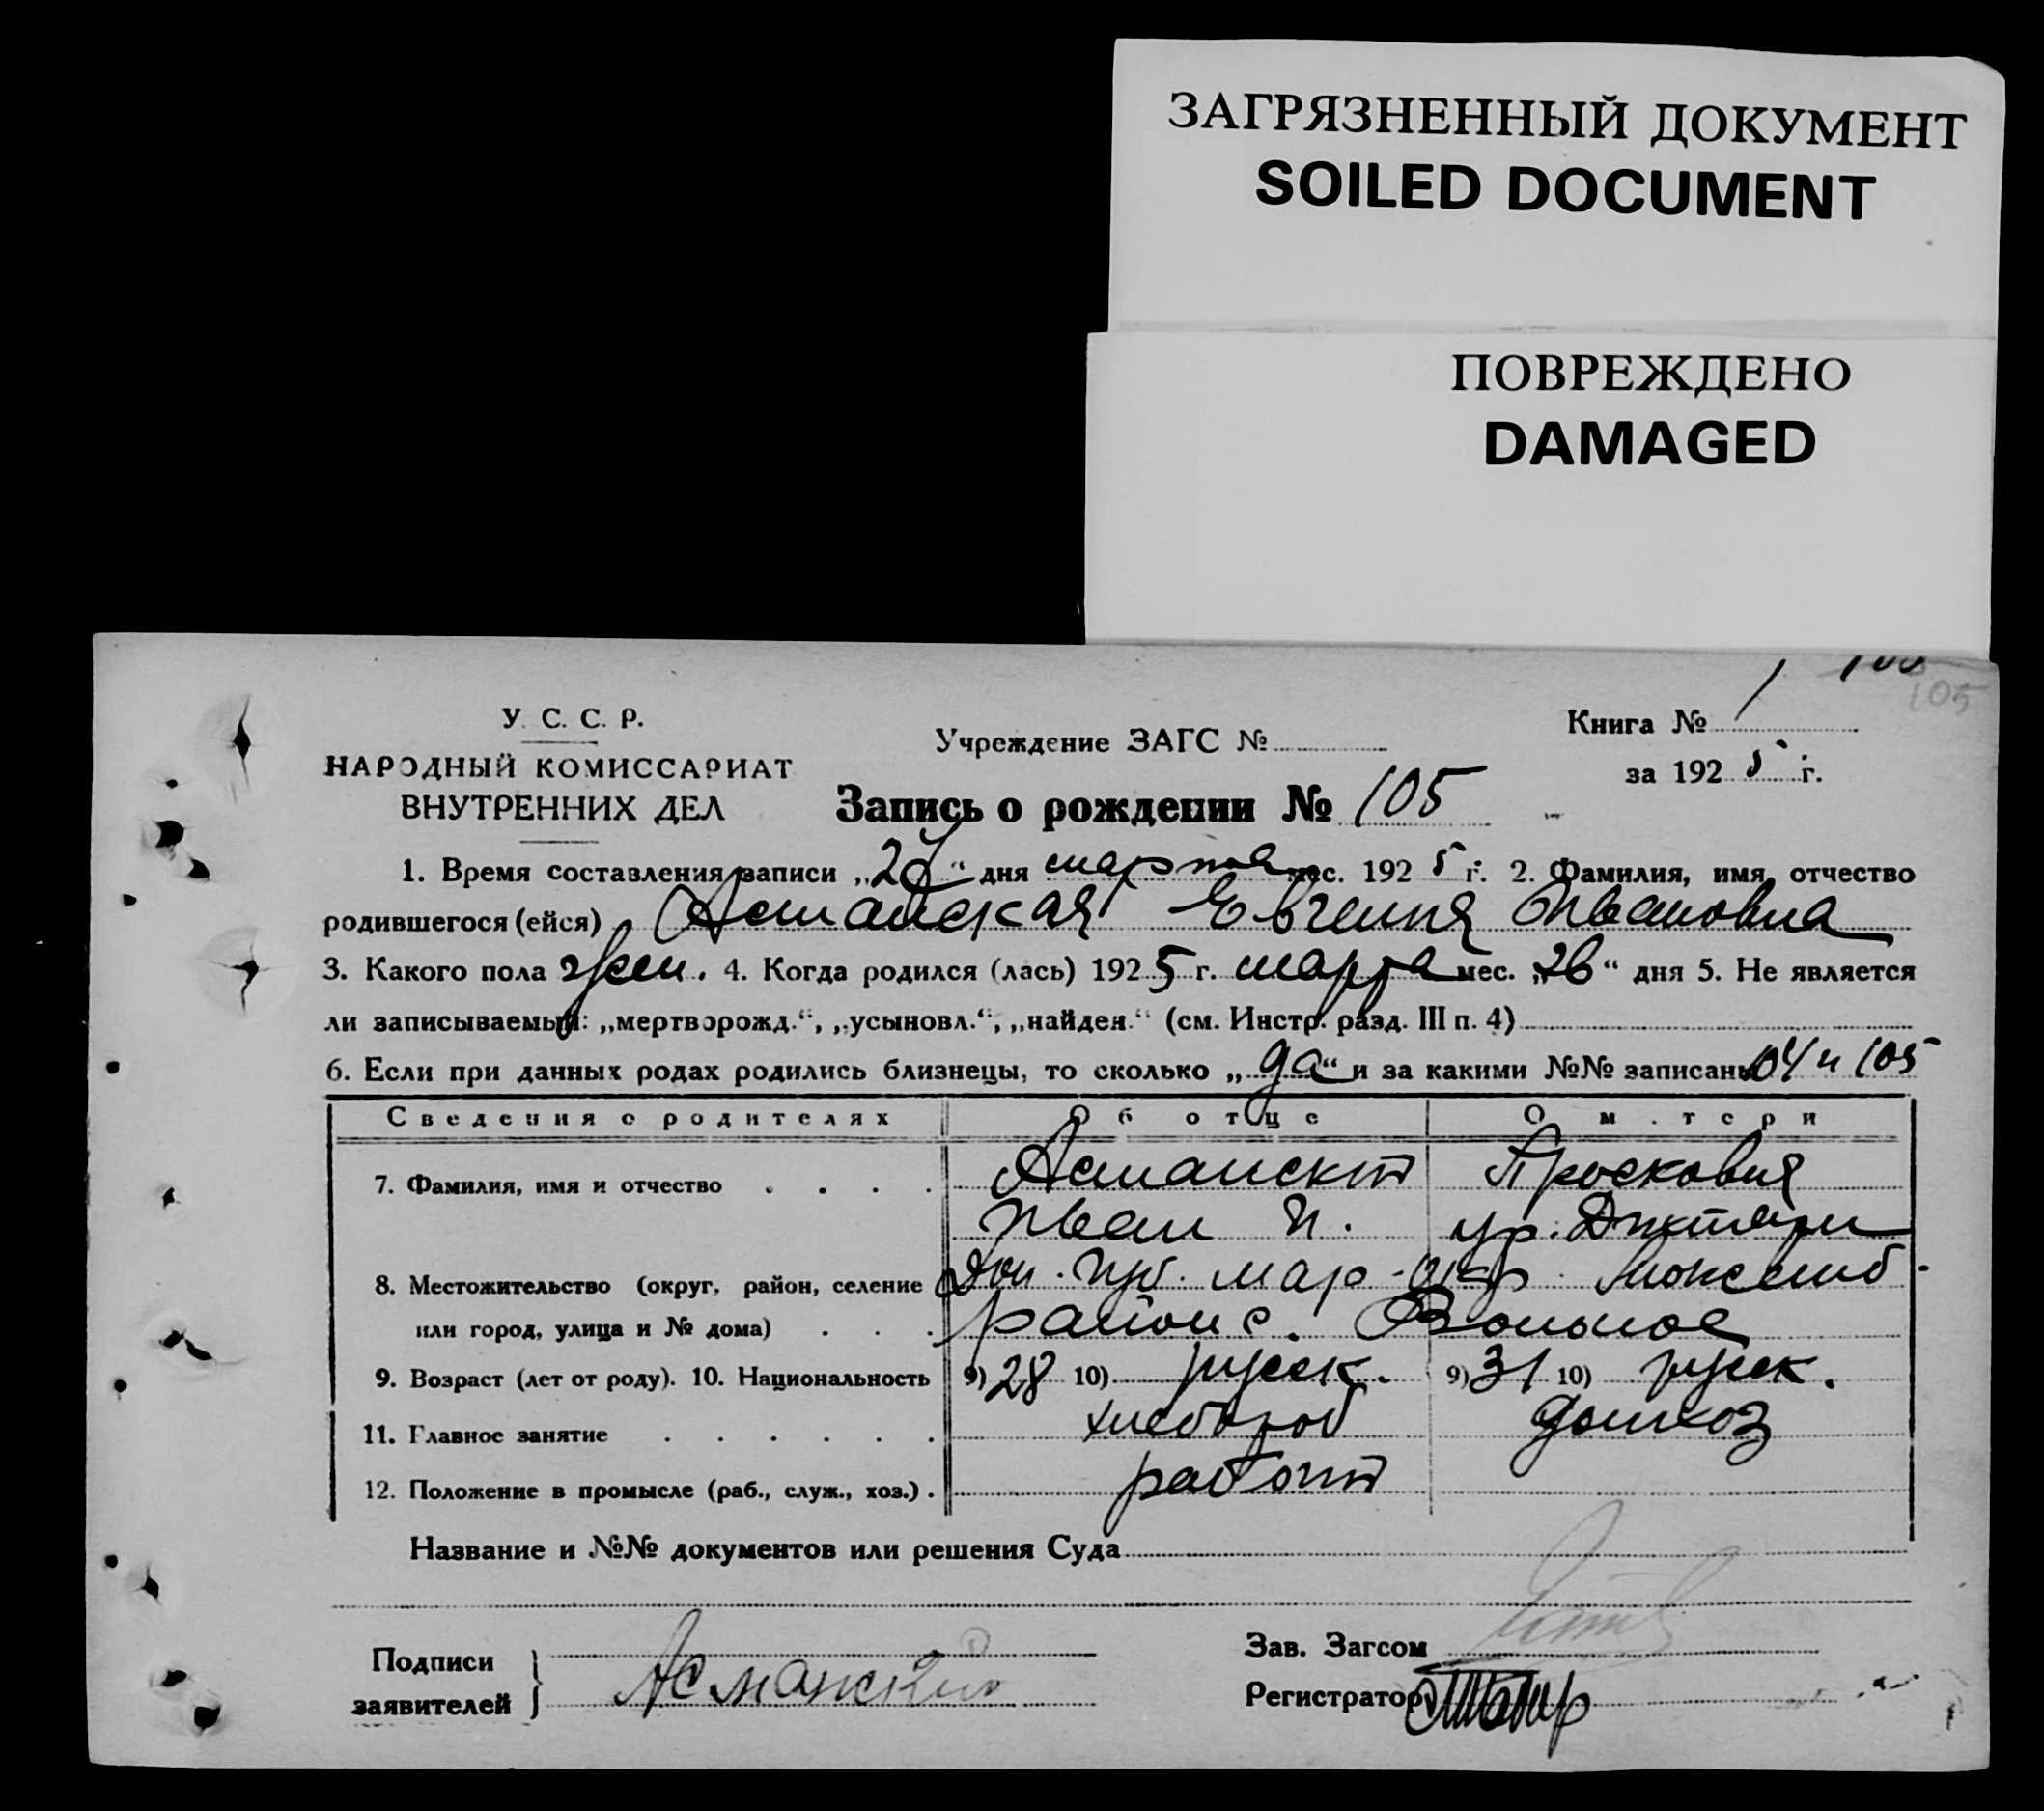 ЗАГРЯЗНЕННЫЙ ДОКУМЕНТ
SOILED DOCUMENT
ПОВРЕЖДЕНО
DAMAGED
105
У. С. С. Р.
НАРОДНЫЙ КОМИССАРИАТ
ВНУТРЕННИХ ДЕЛ
Учреждение ЗАГС №
Книга № 1
за 192 5 г.
Запись о рождении № 105
1. Время составления записи „27“ дня марта мес. 192 5 г. 2. Фамилия, имя, отчество
родившегося (ейся) Асманская Евгения Ивановна
3. Какого пола жен. 4. Когда родился (лась) 192 5 г. марта мес. „26“ дня 5. Не является
ли записываемый: „мертворожд.“, „усыновл.“, „найден.“ (см. Инстр. разд. III п. 4)
6. Если при данных родах родились близнецы, то сколько „да“ и за какими №№ записаны 104 и 105
Сведения о родителях Об отце О м.тери
7. Фамилия, имя и отчество Асманский Просковия
Иван И. ур.
8. Местожительство (округ, район, селение Дон. губ. мар. окр.
или город, улица и № дома) район с. Вольное
9. Возраст (лет от роду). 10. Национальность 9) 28 10) русск. 9) 31 10) русск.
11. Главное занятие хлебороб домхоз
12. Положение в промысле (раб., служ., хоз.)
Название и №№ документов или решения Суда
Подписи
заявителей
Асманский
Зав. Загсом
Регистратор